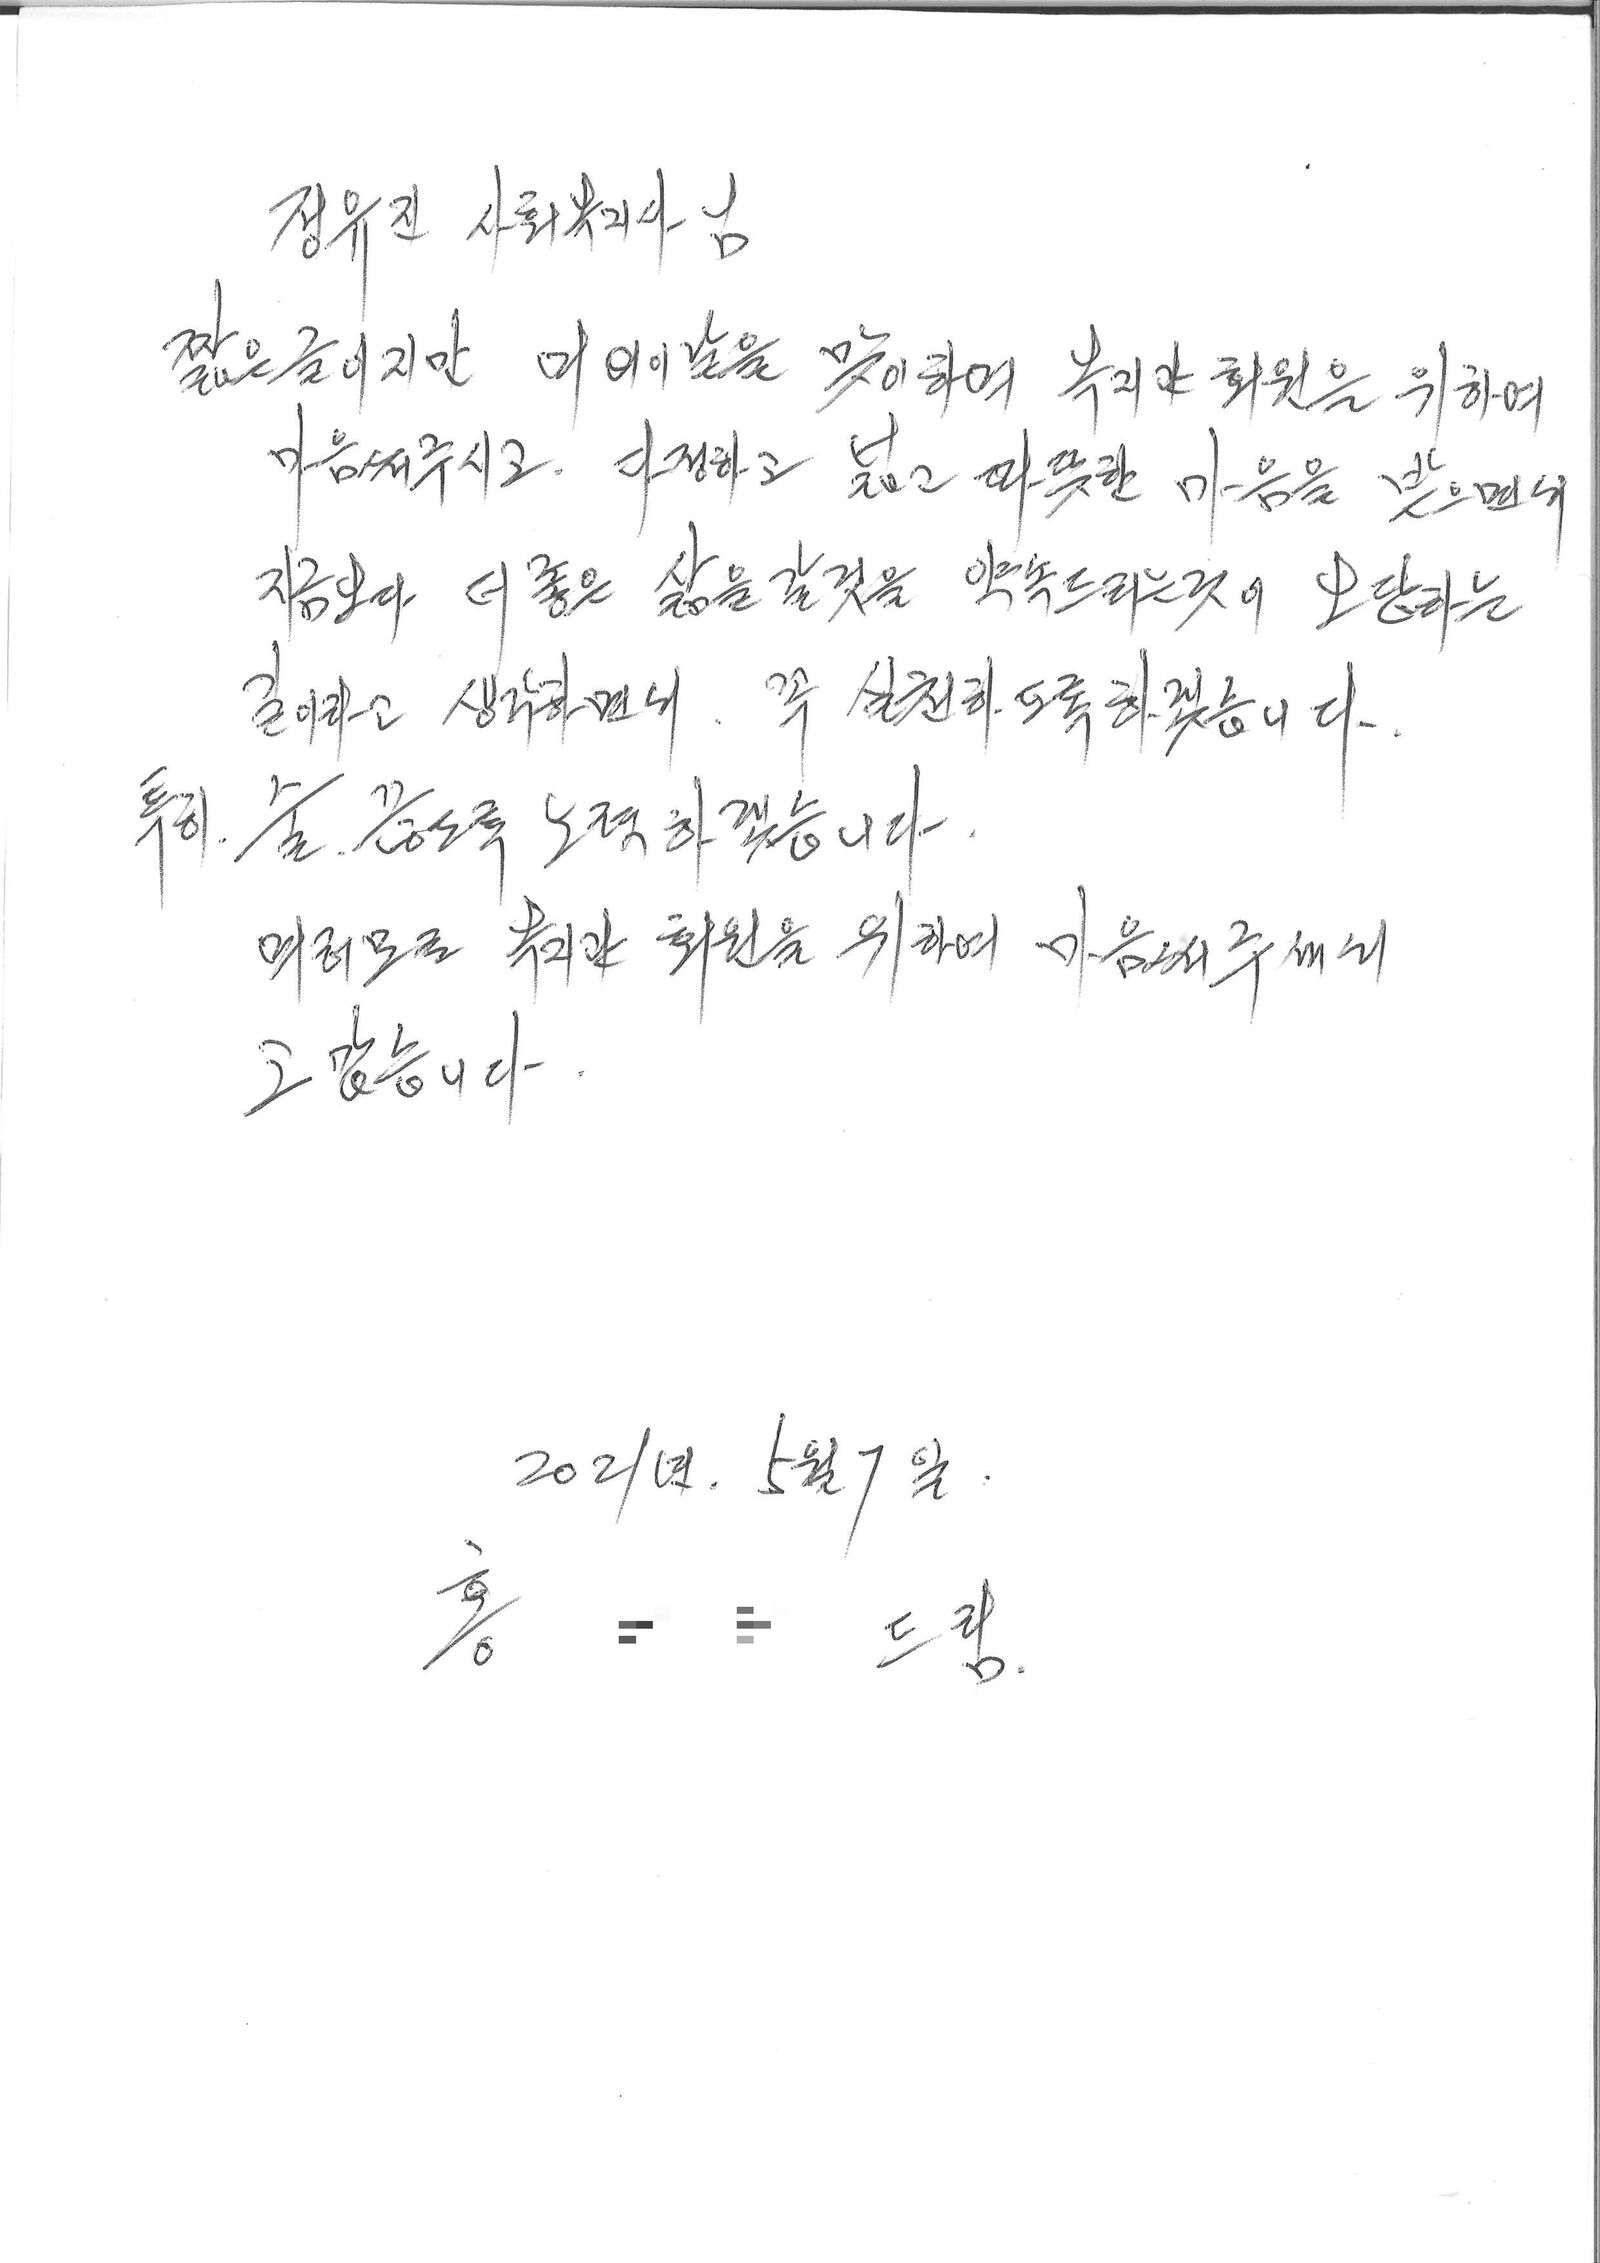 정유진 사회복지사님
짧은글이지만 어버이날을 맞이하여 복지관 회원을 위하여
마음써주시고. 다정하고 넓고 따뜻한 마음을 받으면서
지금보다 더 좋은 삶을 갈것을 약속드리는것이 보답하는
길이라고 생각하면서. 꼭 실천하도록하겠습니다.
특히. 술. 끊도록 노력하겠습니다.
여러모로 복지관 회원을 위하여 마음써주셔서
고맙습니다.
2021년. 5월 7일.
홍 드림.